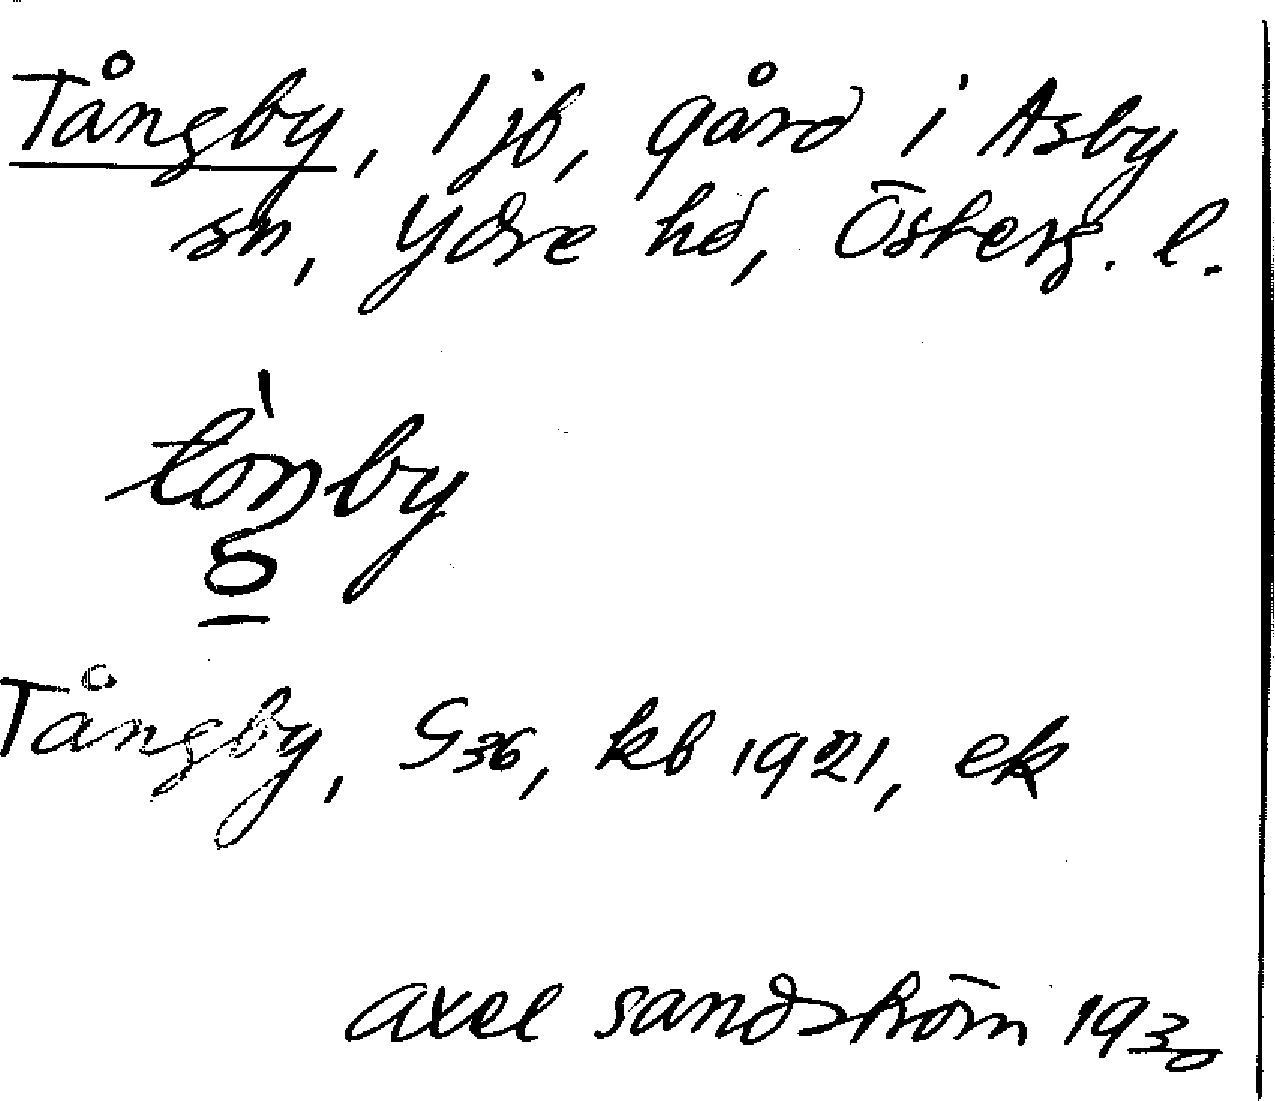 Tångby, 1 jb, gård i Asby
sn, Ydre hd, Österg. l.
Tångby, G36, kb 1921, ek
axel sandström 1930